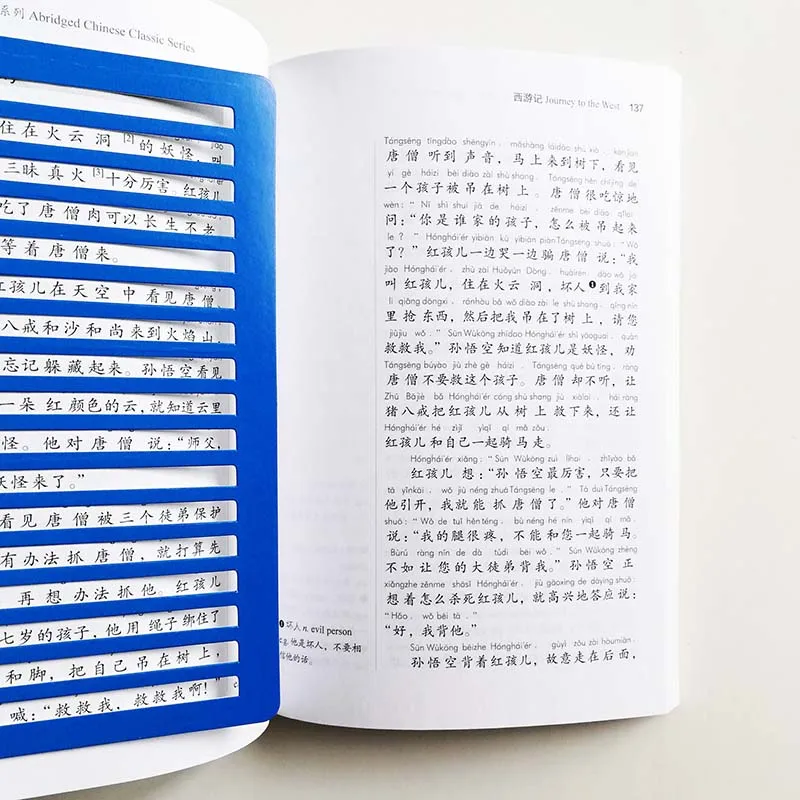 系列 Abridged Chinese Classic Series
住在火云洞[2]的妖怪,叫
三昧真火[3]十分厉害。红孩儿
吃了唐僧肉可以长生不老
等着唐僧来。
红孩儿在天空中看见唐僧
八戒和沙和尚来到火焰山
忘记躲藏起来。孙悟空看见
一朵红颜色的云,就知道云里
怪。他对唐僧说:“师父,
妖怪来了。”
看见唐僧被三个徒弟保护
有办法抓唐僧,就打算先
再想办法抓他。红孩儿
七岁的孩子,他用绳子绑住了
和脚,把自己吊在树上,
喊:“救救我,救救我啊!”
西游记 Journey to the West 137
Tángsēng tīngdào shēngyīn, mǎshàng láidào shù xià, kànjiàn
唐僧听到声音,马上来到树下,看见
yí gè háizi bèi diào zài shù shang. Tángsēng hěn chījīng de
一个孩子被吊在树上。唐僧很吃惊地
wèn: “Nǐ shì shuí jiā de háizi, zěnme bèi diào qǐlai
问:“你是谁家的孩子,怎么被吊起来
le? ” Hónghái'ér yìbiān kū yìbiān piàn Tángsēng shuō: “Wǒ
了?”红孩儿一边哭一边骗唐僧说:“我
jiào Hónghái'ér, zhù zài Huǒyún Dòng, huàirén dào wǒ jiā
叫红孩儿,住在火云洞,坏人❶到我家
lǐ qiǎng dōngxi, ránhòu bǎ wǒ diào zài le shù shang, qǐng nín
里抢东西,然后把我吊在了树上,请您
jiùjiu wǒ. ” Sūn Wùkōng zhīdào Hónghái'ér shì yāoguai, quàn
救救我。”孙悟空知道红孩儿是妖怪,劝
Tángsēng búyào jiù zhè gè háizi. Tángsēng què bù tīng, ràng
唐僧不要救这个孩子。唐僧却不听,让
Zhū Bājiè bǎ Hónghái'ér cóng shù shang jiù xiàlai, hái ràng
猪八戒把红孩儿从树上救下来,还让
Hónghái'ér hé zìjǐ yìqǐ qí mǎ zǒu.
红孩儿和自己一起骑马走。
Hónghái'ér xiǎng: “Sūn Wùkōng zuì lìhai, zhǐyào bǎ
红孩儿想:“孙悟空最厉害,只要把
tā yǐnkāi, wǒ jiù néng zhuā Tángsēng le. ” Tā duì Tángsēng
他引开,我就能抓唐僧了。”他对唐僧
shuō: “Wǒ de tuǐ hěn téng, bù néng hé nín yìqǐ qí mǎ.
说:“我的腿很疼,不能和您一起骑马。
Bùrú ràng nín de dà túdì bēi wǒ. ” Sūn Wùkōng zhèng
不如让您的大徒弟背我。”孙悟空正
xiǎngzhe zěnme shāsǐ Hónghái'ér, jiù gāoxìng de dāying shuō:
想着怎么杀死红孩儿,就高兴地答应说:
“Hǎo, wǒ bēi tā. ”
“好,我背他。”
Sūn Wùkōng bēizhe Hónghái'ér, gùyì zǒu zài hòumiàn,
孙悟空背着红孩儿,故意走在后面,
❶坏人 n. evil person
e.g. 他是坏人,不要相
信他的话。